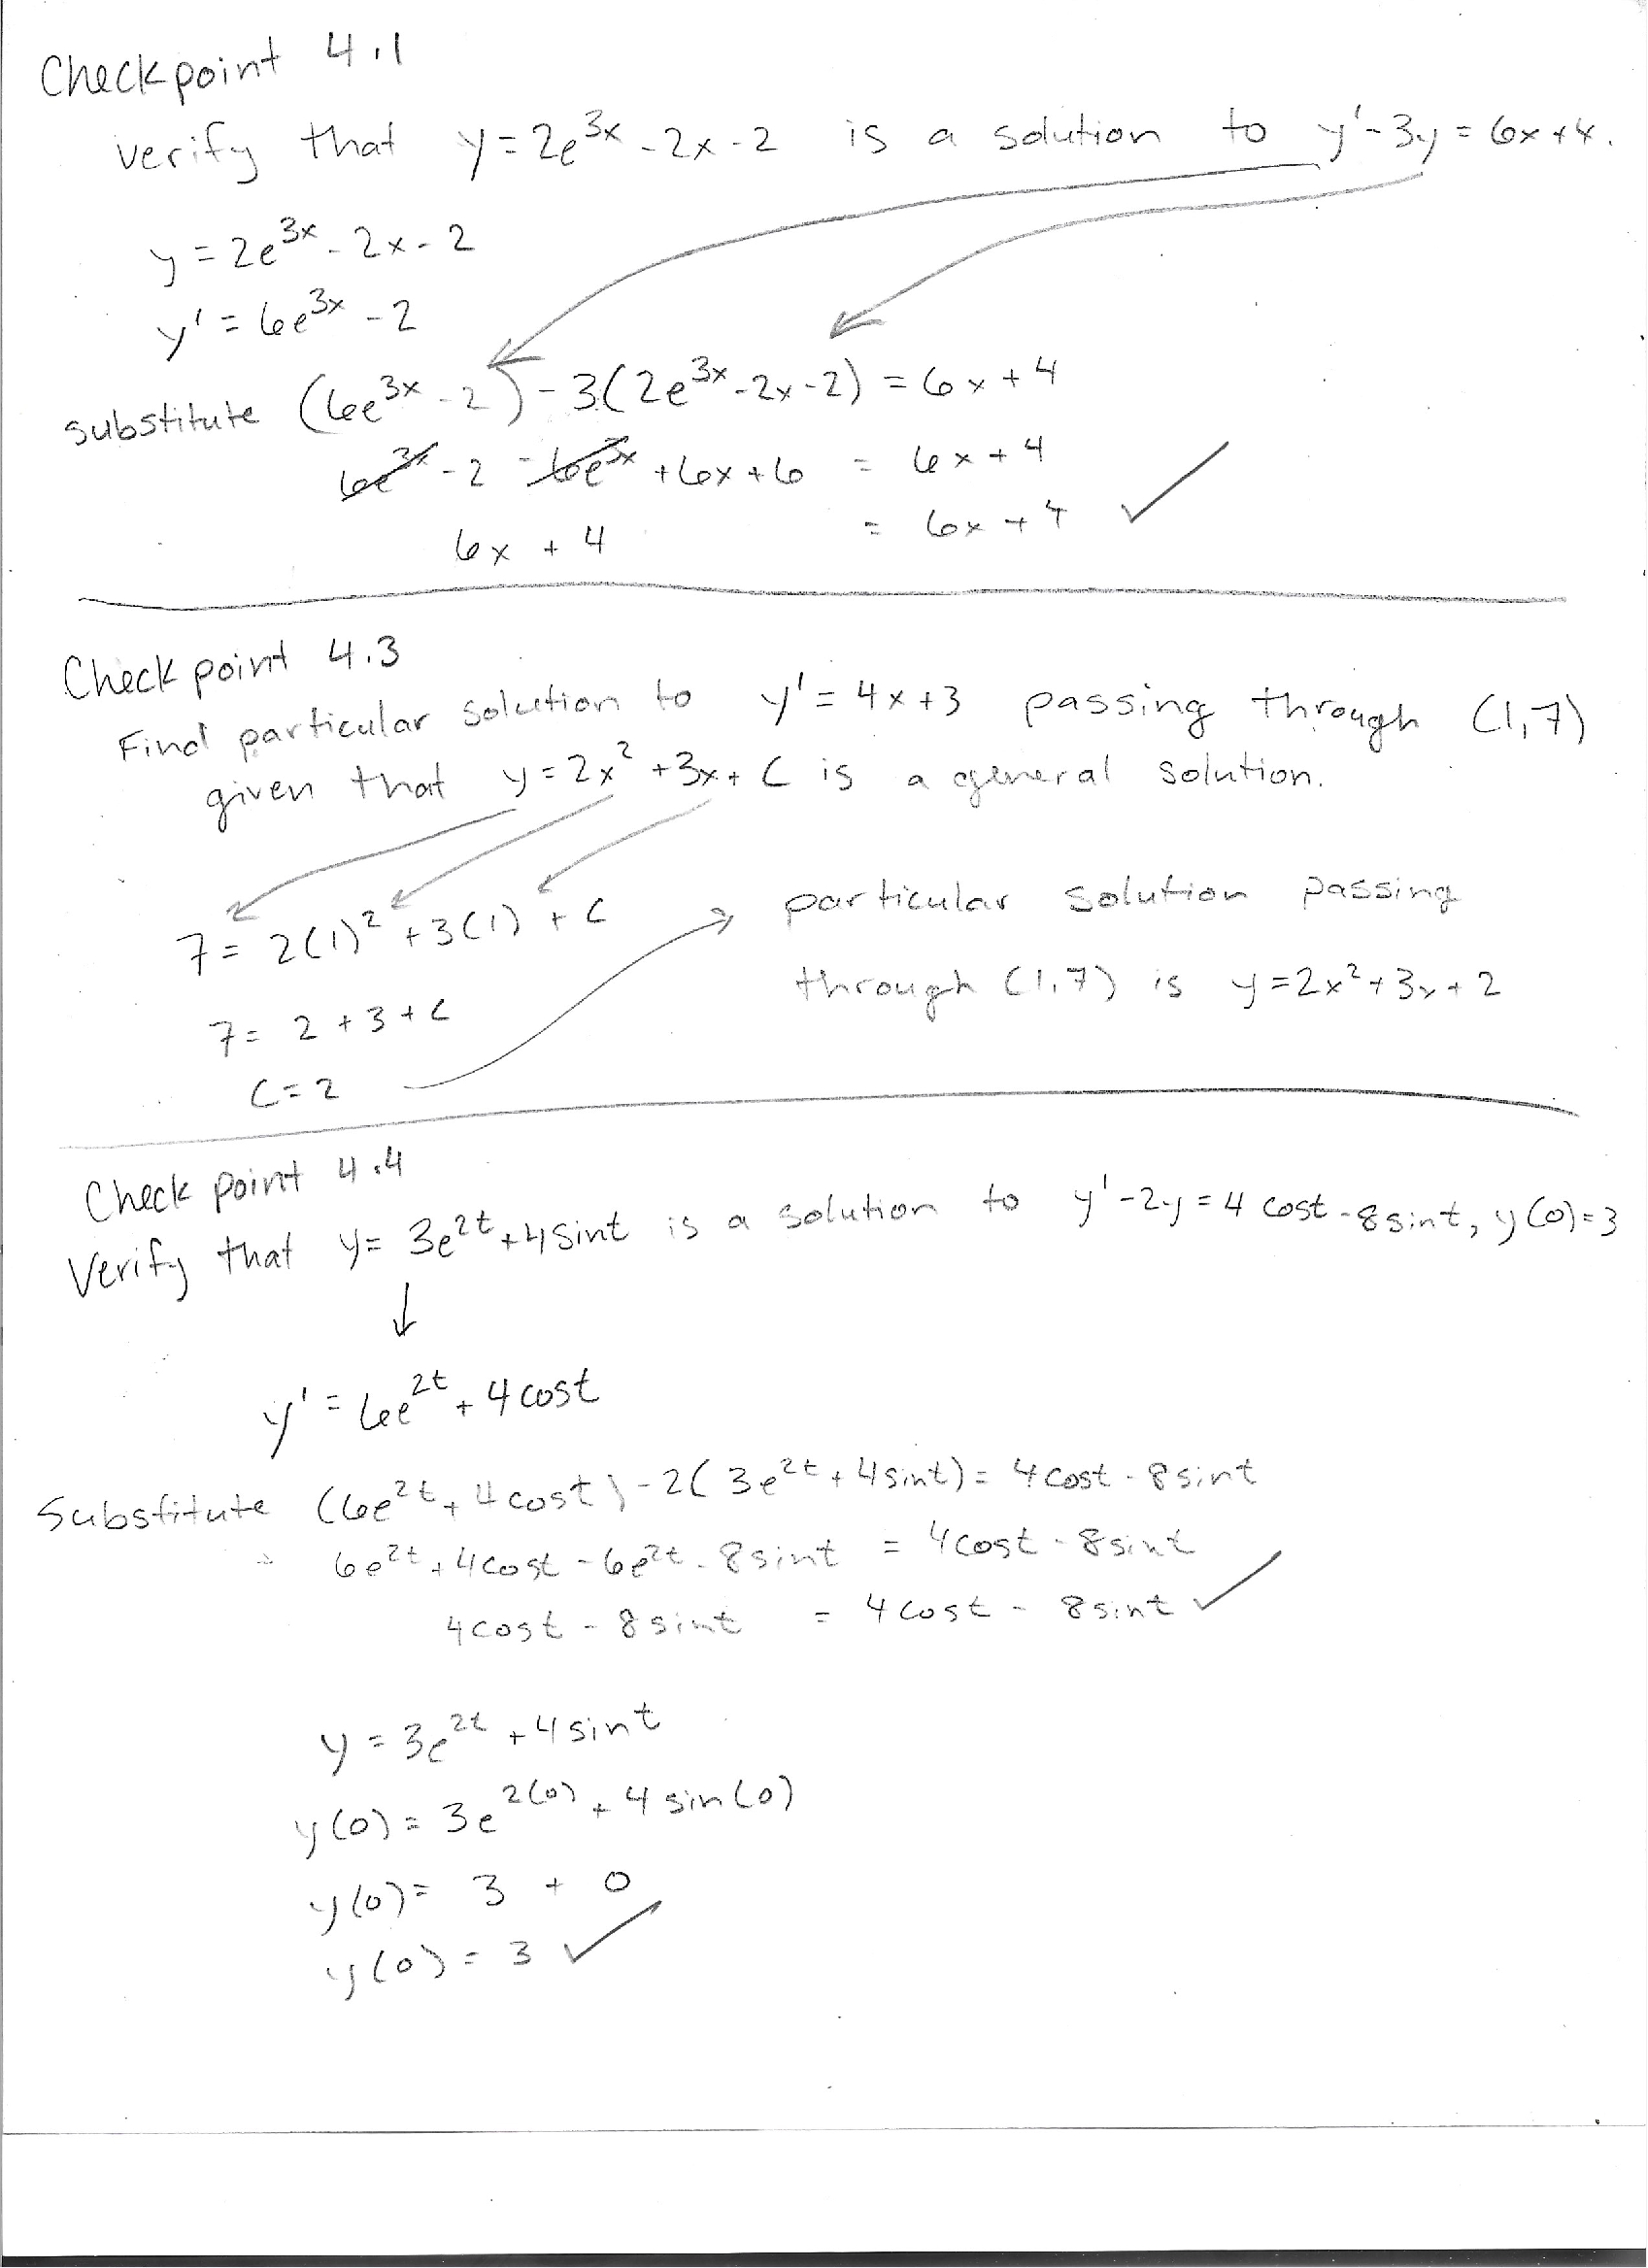 Checkpoint 4.1
verify that y = 2e^3x - 2x - 2 is a solution to y' - 3y = 6x + 4.
y = 2e^3x - 2x - 2
y' = 6e^3x - 2
substitute (6e^3x - 2) - 3(2e^3x - 2x - 2) = 6x + 4
6e^3x - 2 - 6e^3x + 6x + 6 = 6x + 4
6x + 4 = 6x + 4 ✓
Checkpoint 4.3
Find particular solution to y' = 4x + 3 passing through (1,7)
given that y = 2x² + 3x + C is a general solution.
7 = 2(1)² + 3(1) + C
7 = 2 + 3 + C
C = 2
particular solution passing
through (1,7) is y = 2x² + 3x + 2
Check point 4.4
Verify that y = 3e^2t + 4sint is a solution to y' - 2y = 4 cost - 8 sint, y(0) = 3
↓
y' = 6e^2t + 4cost
Substitute (6e^2t + 4cost) - 2(3e^2t + 4sint) = 4cost - 8sint
6e^2t + 4cost - 6e^2t - 8sint = 4cost - 8sint
4cost - 8sint = 4cost - 8sint ✓
y = 3e^2t + 4sint
y(0) = 3e^2(0) + 4 sin(0)
y(0) = 3 + 0
y(0) = 3 ✓